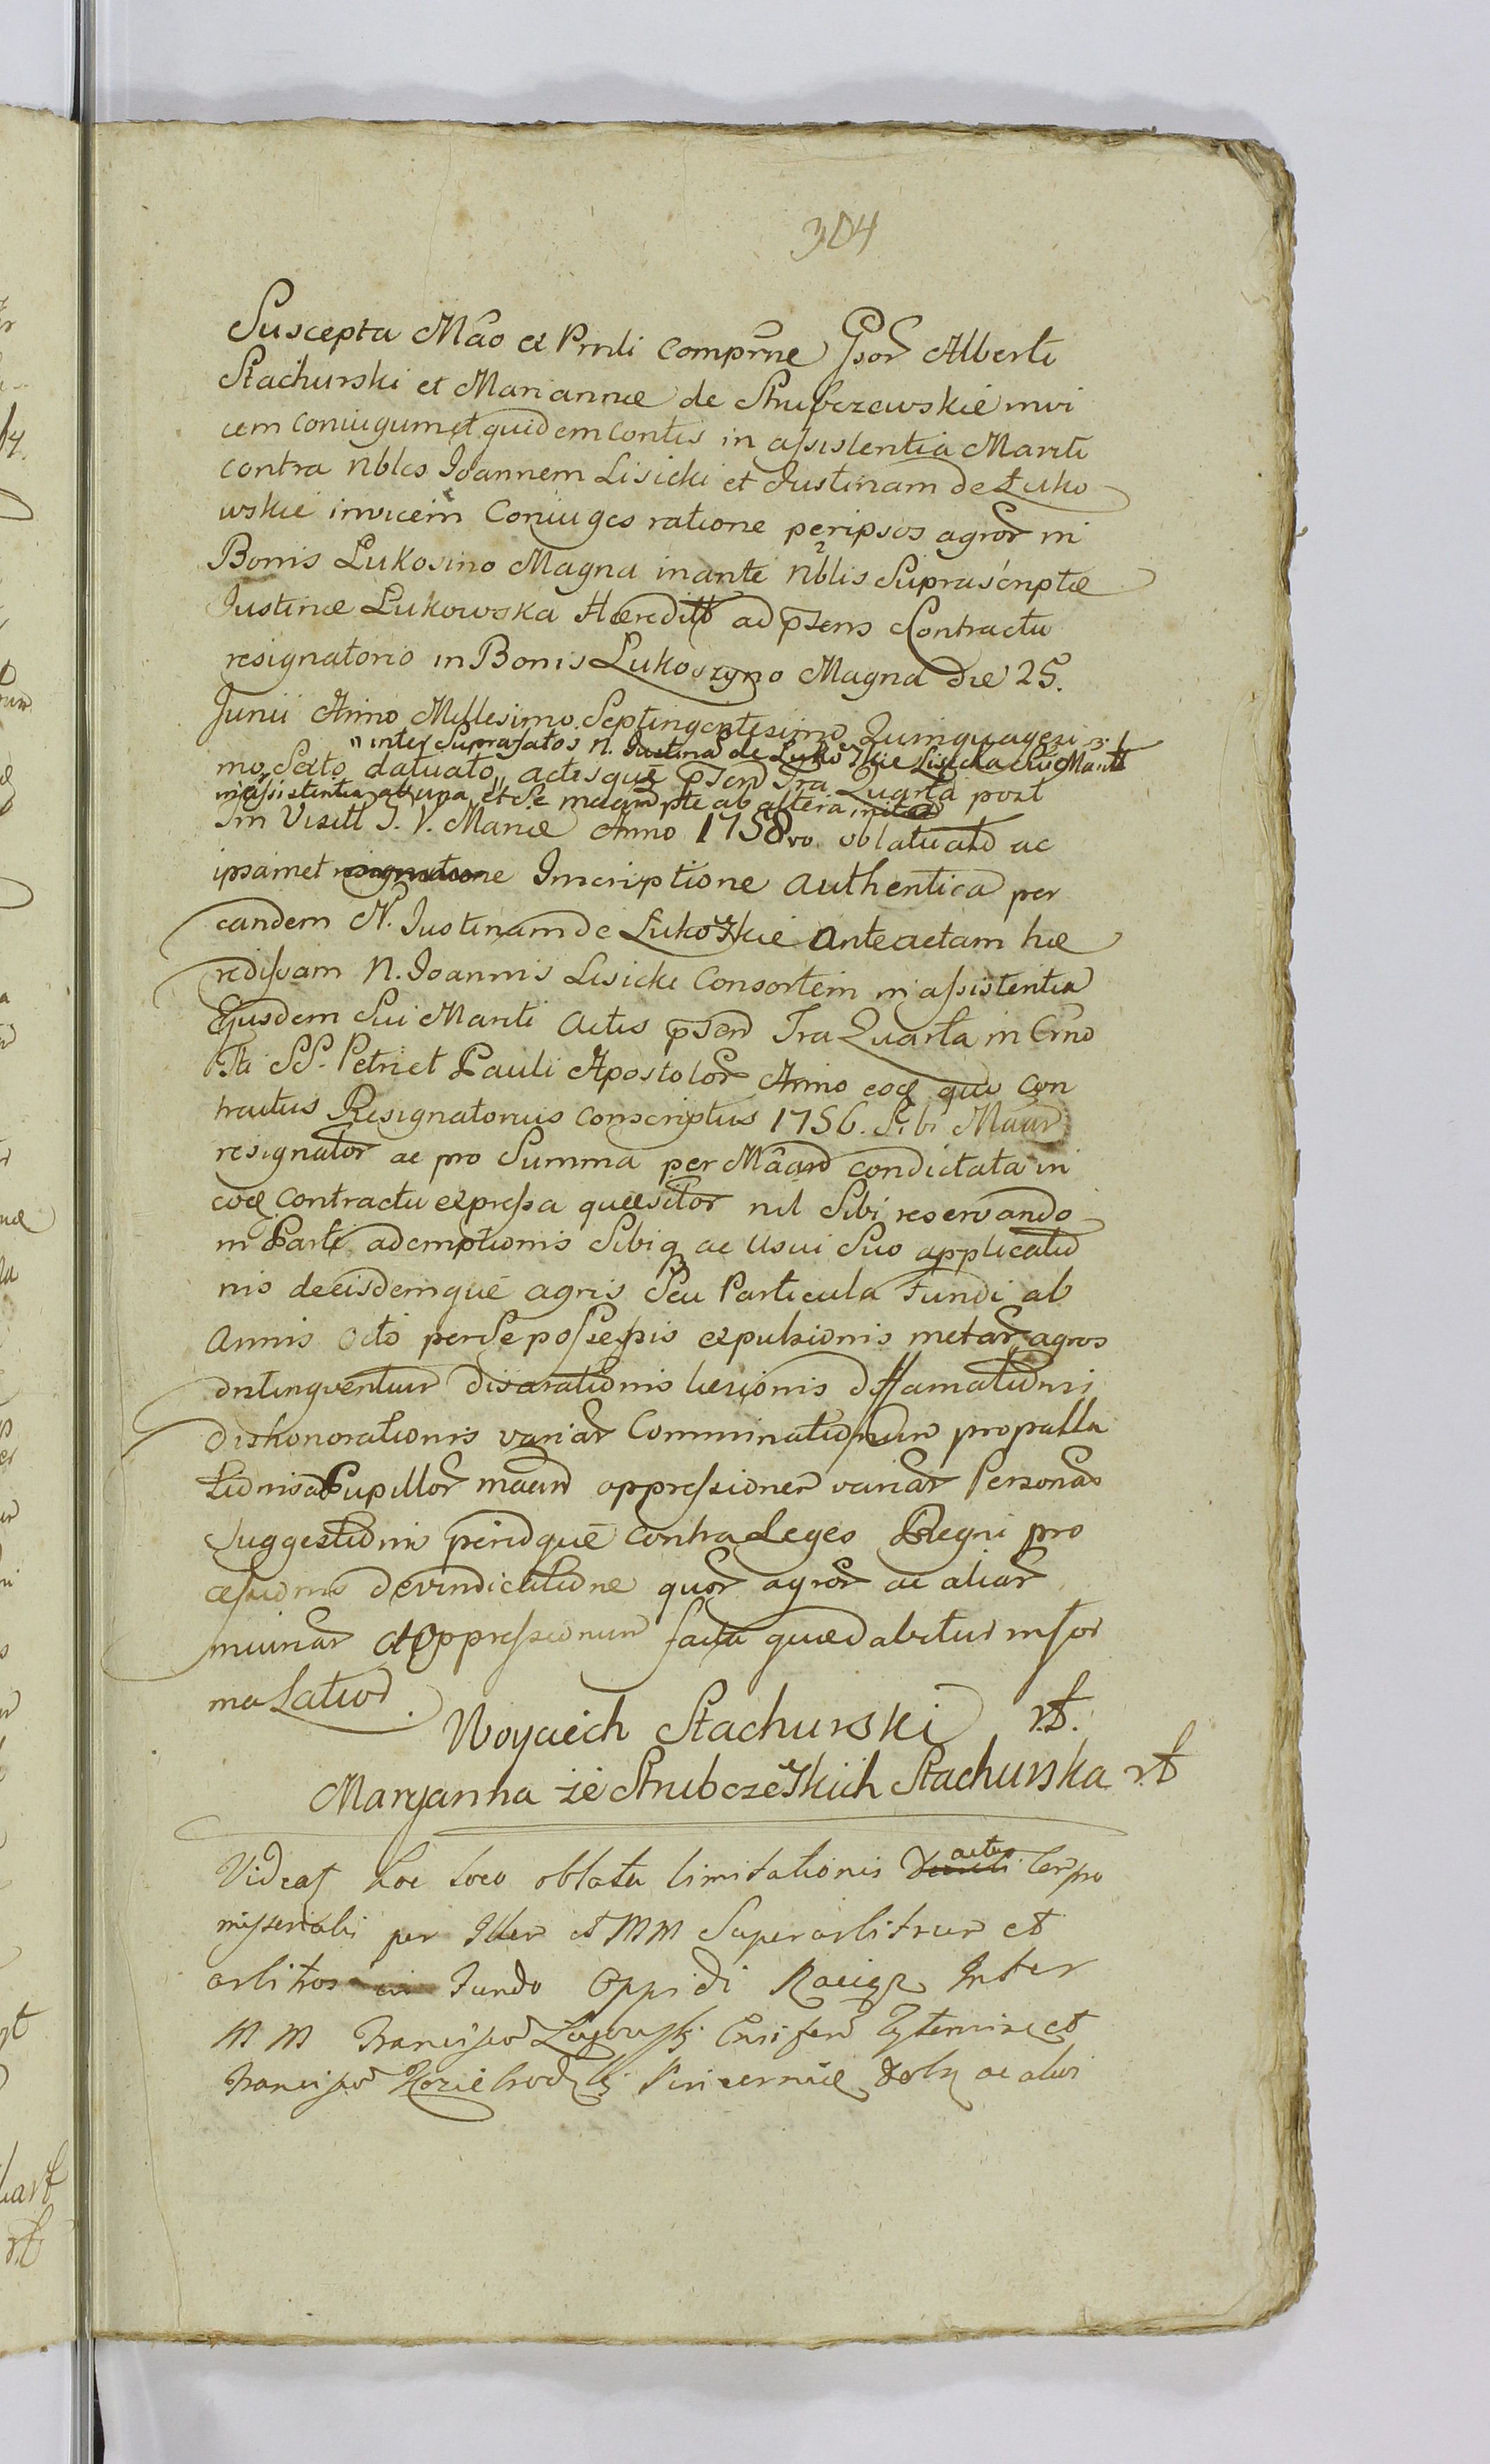 304
Suscepta Mão et Prnli comprñe Gsor Alberti
Stachurski et Mariannæ de Strubczewskie invi
cem coniugum et quidem contis in assistentia Mariti
contra Nbles Joannem Lisicki et Justinam de Łuko
wskie invicem Coniuges ratione per ipsos agror in
Bonis Lukosino Magna in ante Nblis Suprascriptæ
Justinæ Lukowska Hæreditt ad psens Contractu
resignatorio in Bonis Lukoszyno Magna die 25.
Junii Anno Millesimo Septingentesimo Quinquagesi
" inter Suprafatos N. Justina de Lukoskie Lisicka sui Maritt
mo Sexto datuato " actisque psen Fra Quarta post
in assistentia ab una et Se maand pte ab altera
Fm Visitt J. V. Mariæ Anno 1758vo oblatuatd ac
ipsamet Inscriptione Authentica per
eandem N. Justinam de Lukoskie Anteactam hæ
redissam N. Joannis Lisicki Consortem in assistentia
Ejusdem Sui Mariti Actis psen Fra Quarta in Crno
Fti SS. Petri et Pauli Apostolor Anno eoq quo Con
tractus Resignatorius conscriptus 1756. Sibi Maan
resignator ac pro Summa per Mâand condictata in
eoq contractu expressa quæsitor nil Sibi reservando
in Parte ademptionis Sibiq ac Usui Suo applicatio
nis de eisdemque agris Seu Particula Fundi ab
Annis Octo per Se possessis expulsionis metar agros
distingventium disarationis læsionis diffamationis
dishonorationis variar Comminationum propalla
tionis Pupillor maand oppressionem variar Personar
Suggestionis contra Leges Regni pro
cessionis devindicatione quor agror ac aliar
iniuriar et Oppressionum facta quæ dabitur in for
ma Latiori.
Woyciech Stachurski
Maryanna ze Strubczeskich Stachurska
Videat hoc loco oblata limitationis actus Compro
missorialis per Iller et MM Superarbitrum et
arbitros in Fundo Oppidi Raciąz Inter
MM Franciscum Łazowski Ensiferum et
Franciscum Koziebrodzki Pincernæ ac alios